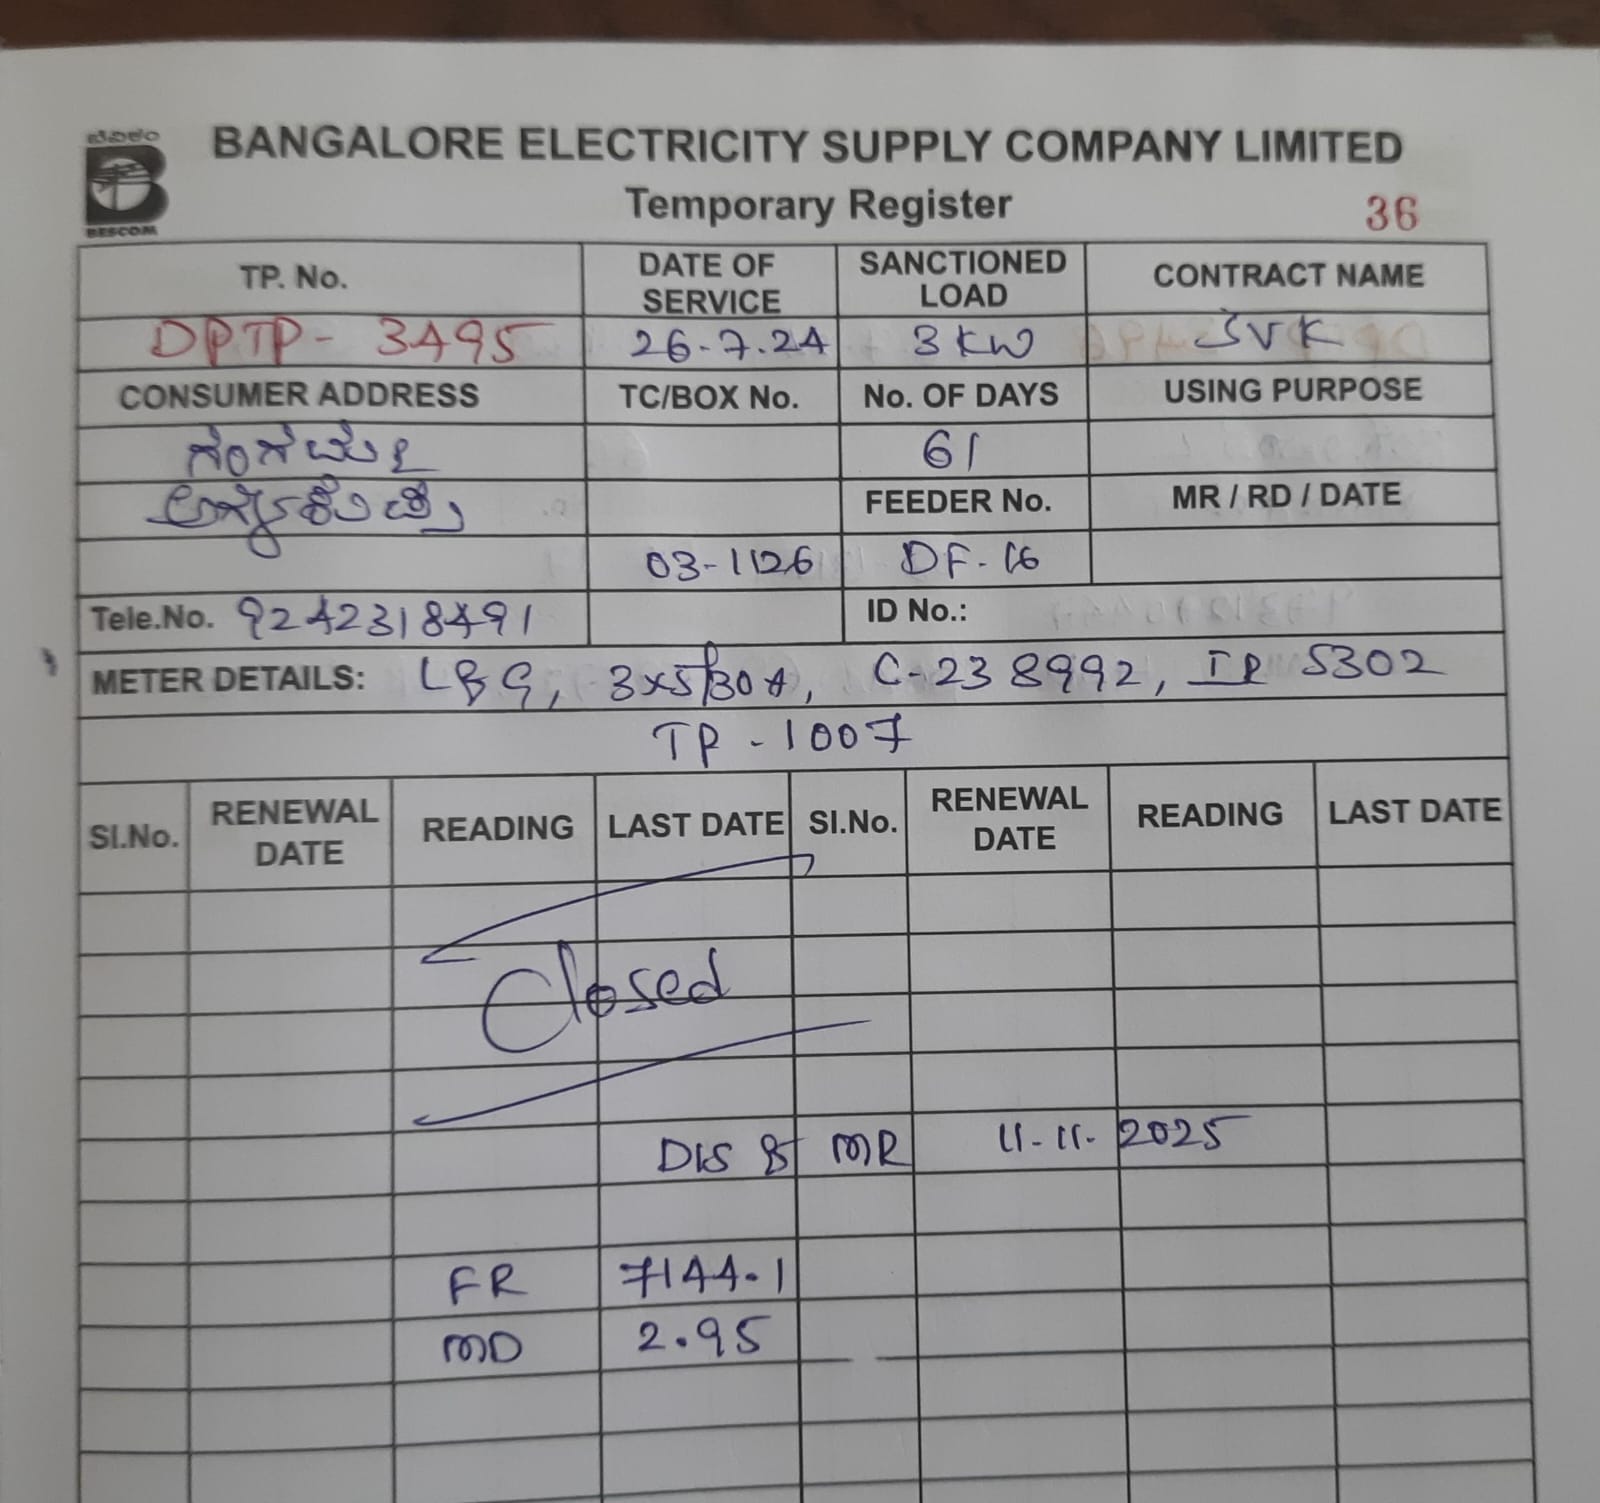 ಬೆವಿಕಂ
BESCOM
BANGALORE ELECTRICITY SUPPLY COMPANY LIMITED
Temporary Register
36
TP. No. DATE OF SERVICE SANCTIONED LOAD CONTRACT NAME
DPTP - 3495 26-7-24 3 KW SVK
CONSUMER ADDRESS TC/BOX No. No. OF DAYS USING PURPOSE
61
FEEDER No. MR / RD / DATE
03-1126 DF-16
Tele.No. 9242318491 ID No.:
METER DETAILS: L&G, 3x5/30A, C-238992, IR 5302
TP - 1007
Sl.No. RENEWAL DATE READING LAST DATE Sl.No. RENEWAL DATE READING LAST DATE
Closed
DIS & MR 11-11-2025
FR 7144.1
MD 2.95